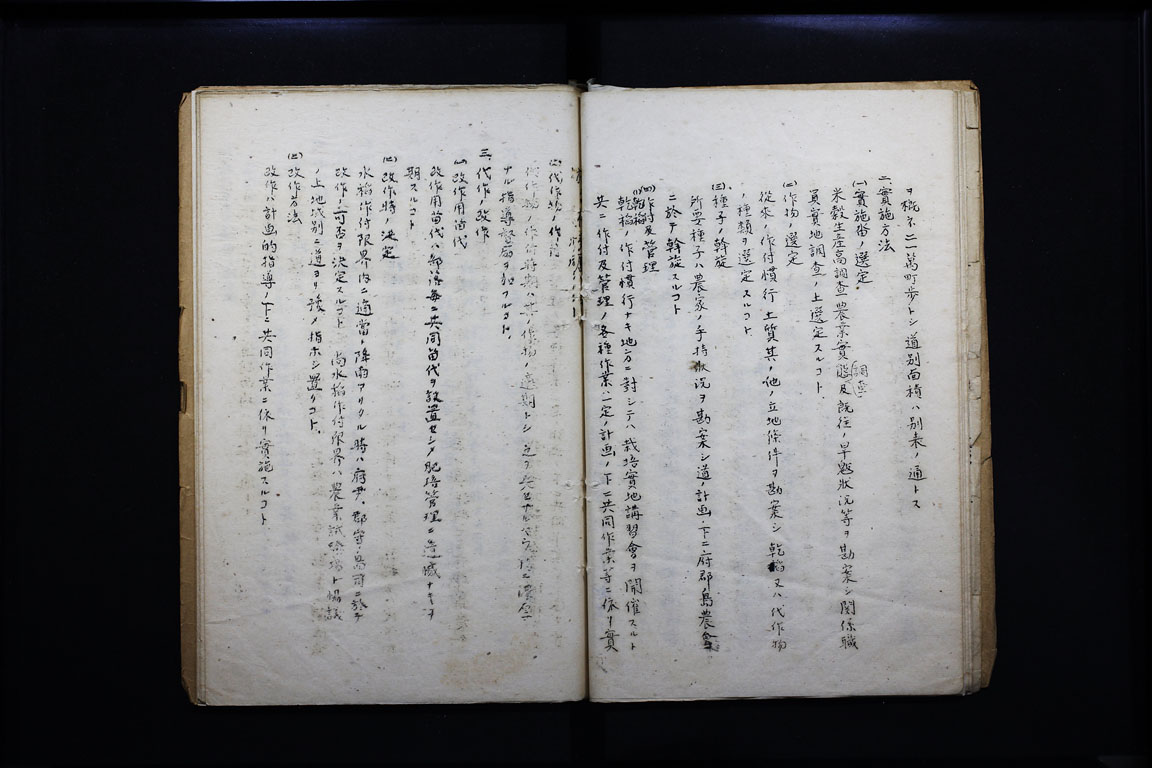 ヲ概ネ二一萬町歩トシ道別面積ハ別表ノ通トス
二、實施方法
(一)實施畓ノ選定
米穀生産高調査農業實態調査及既往ノ旱魃狀況等ヲ勘案シ關係職
員實地調査ノ上選定スルコト
(二)作物ノ選定
從來ノ作付慣行土質其ノ他ノ立地條件ヲ勘案シ乾稻又ハ代作物
ノ種類ヲ選定スルコト
(三)種子ノ斡旋
所要種子ハ農家ノ手持狀況ヲ勘案シ道ノ計画ノ下ニ府郡島農會
ニ於テ斡旋スルコト
(四)作付及管理
(1)乾稻
乾稻ノ作付慣行ナキ地方ニ對シテハ栽培實地講習會ヲ開催スルト
共ニ作付及管理ノ各種作業ハ一定ノ計画ノ下ニ共同作業等ニ依リ實
(2)代作物ノ作付
代作物ノ作付時期ハ其ノ作物ノ適期トシ
ナル指導督励ヲ加フルコト
三、代作ノ改作
(一)改作用苗代
改作用苗代ハ部落毎ニ共同苗代ヲ設置セシメ肥培管理ニ遺憾ナキヲ
期スルコト
(二)改作時ノ決定
水稻作付限界内ニ適當ノ降雨アリタル時ハ府尹、郡守、島司ニ於テ
改作ノ可否ヲ決定スルコト 尚水稻作付限界ハ農業試驗場ト協議
ノ上地域別ニ道ヨリ豫メ指示シ置クコト
(三)改作方法
改作ハ計画的指導ノ下ニ共同作業ニ依リ實施スルコト